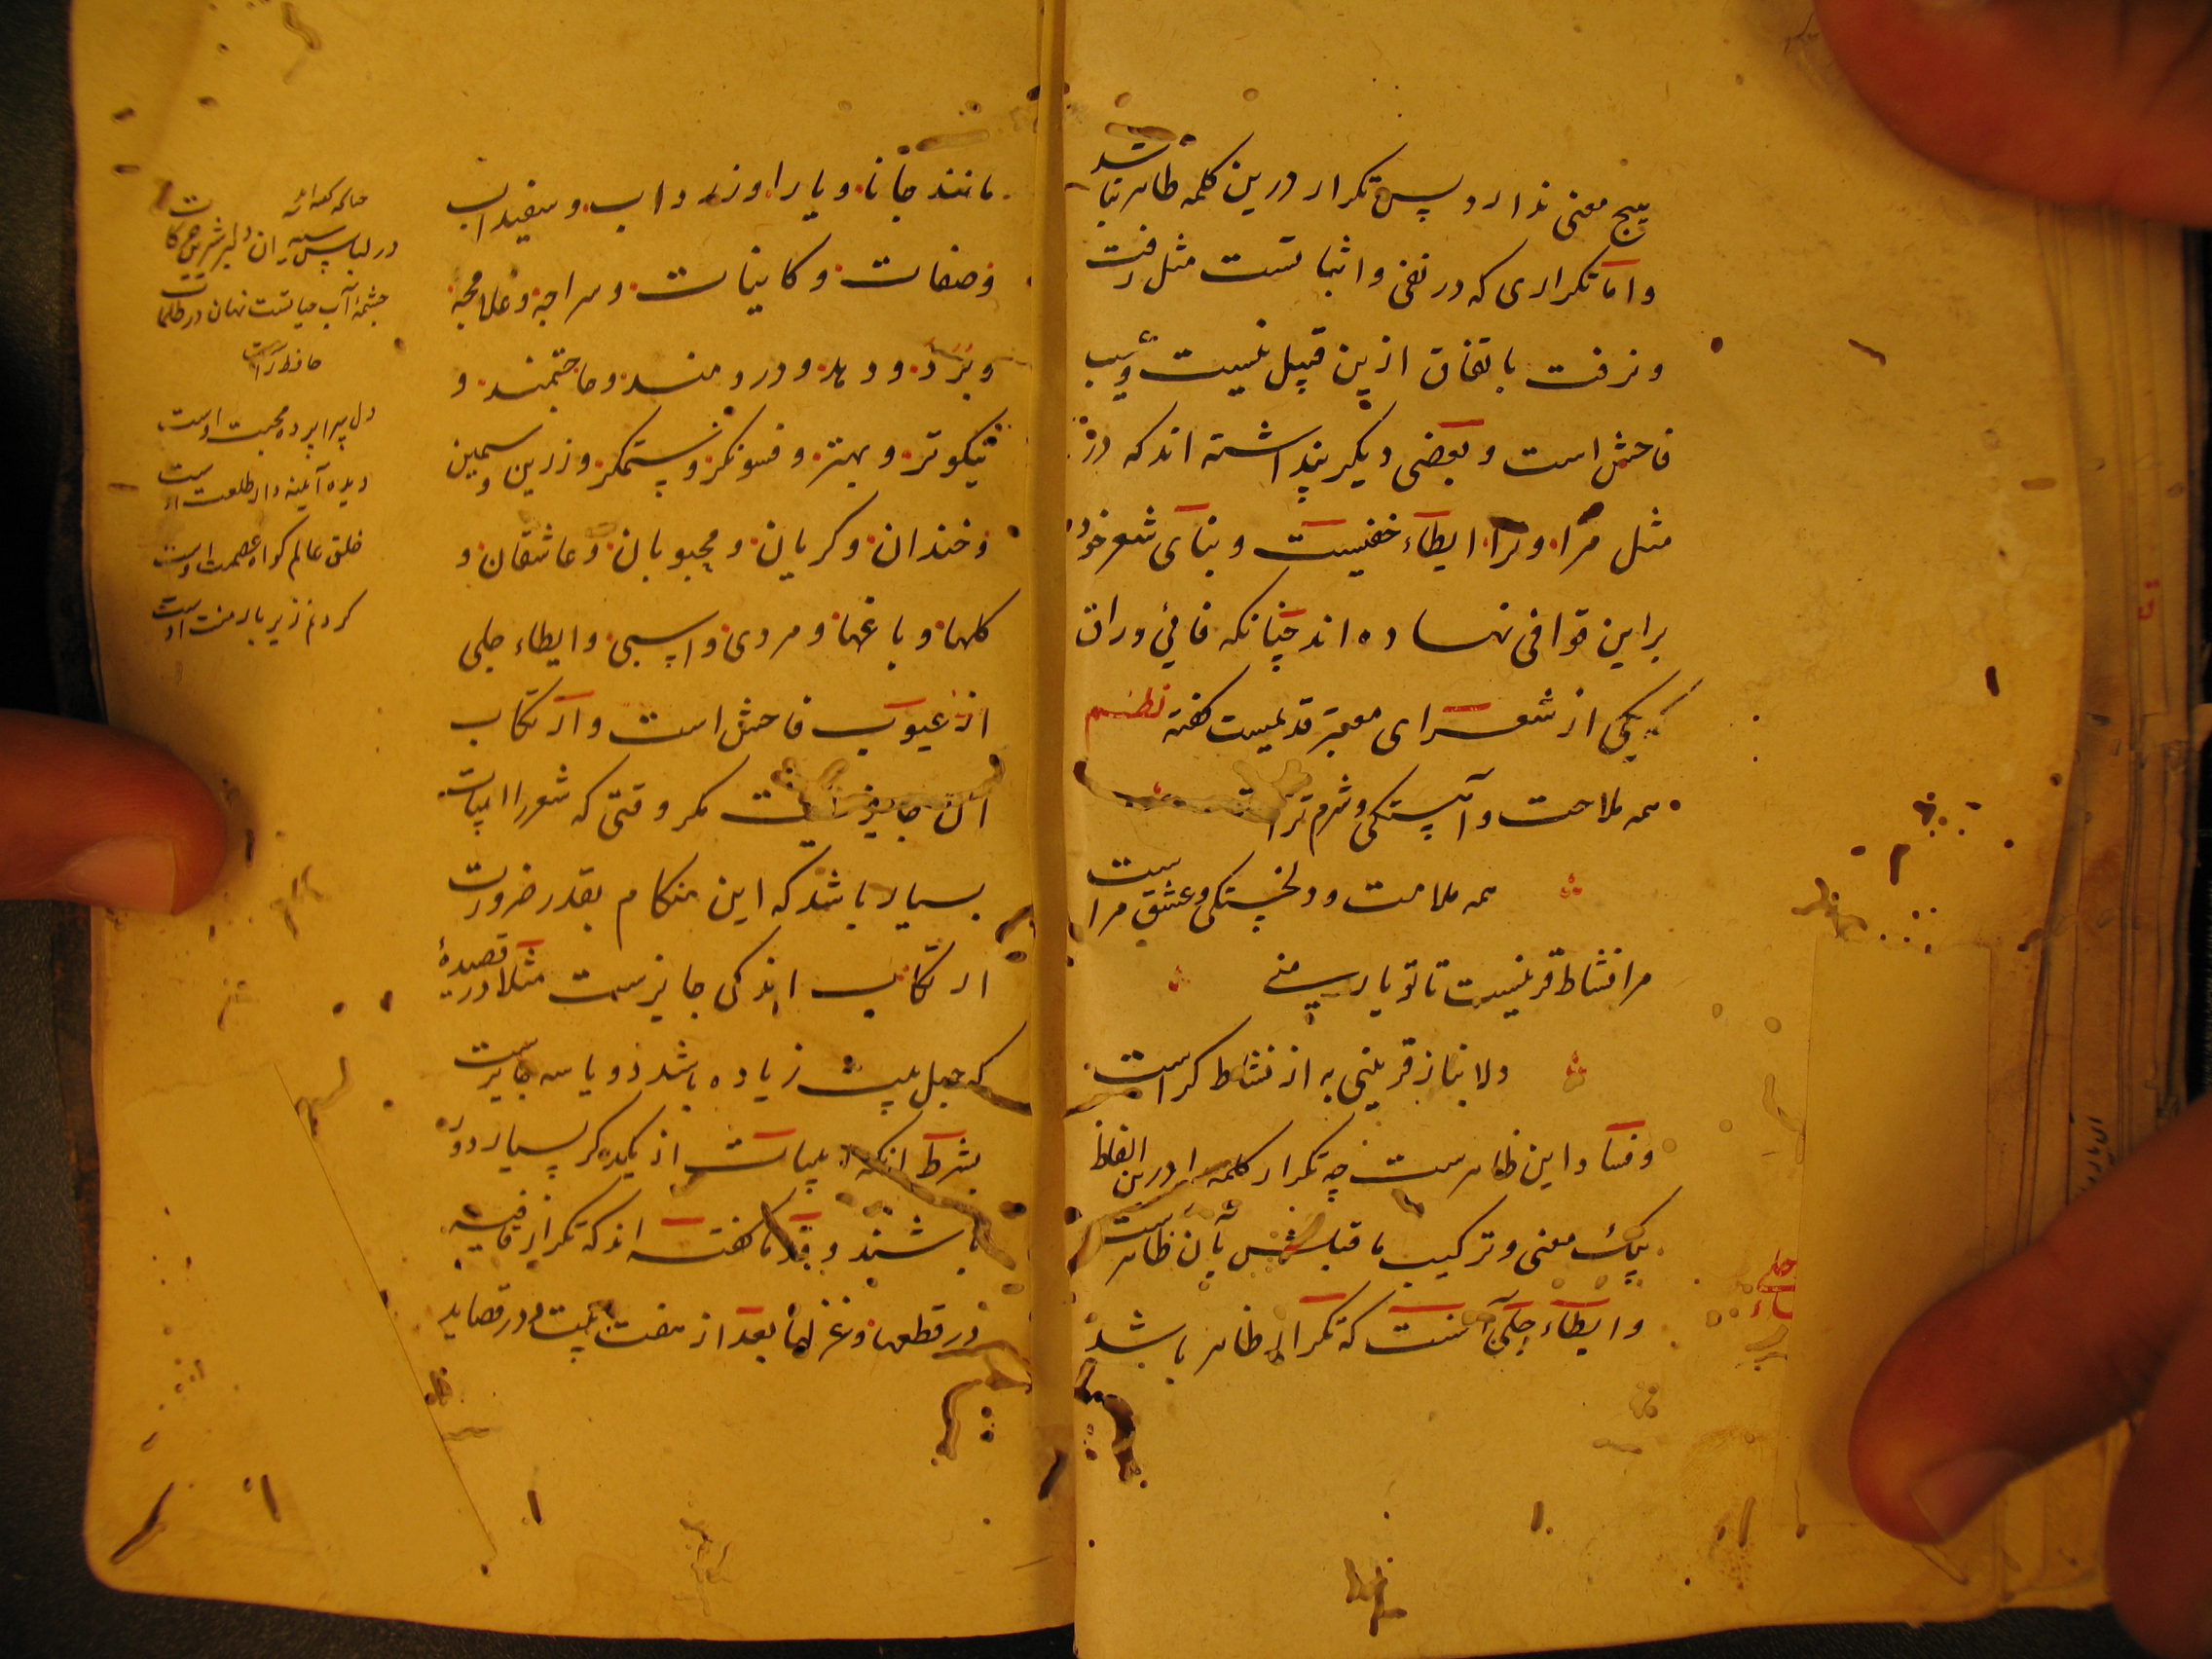 هیچ معنی ندارد پس تکرار درین کلمه ظاهر نباشد
واما تکراری که در نفی و اثباتست مثل رفت
و نرفت باتفاق ازین قبیل نیست و عیب
فاحش است و بعضی دیگر پنداشته اند که در
مثل مرا و ترا ایطاء خفیست و بنای شعر خود
براین قوافی نهاده اند چنانکه
یکی از شعرای معتبر قدیمیست گفته نظم
همه ملاحت و آهستکی و شرم تراست
همه ملامت و دلخستکی و عشق مراست
مرا نشاط قرینست تا تو یار منی
دلا بناز قرینی به از نشاط کراست
و فساد این ظاهرست چه تکرار کلمه را درین الفاظ
بیک معنی و ترکیب ماقبلش بآن ظاهرست
وایطاء جلی آنست که تکرار ظاهر باشد
جلی
مانند جانا و یارا و زرداب و سفیداب
و صفات و کاینات و سراجه و غلامجه
و برد و دهد و دردمند و حاجتمند و
نیکوتر و بهتر و فسونکر و ستمکر و زرین و سیمین
و خندان و کریان و محبوبان و عاشقان و
کلها و باغها و مردی و اسبی و ایطاء جلی
از عیوب فاحش است و ارتکاب
آن جایز نیست مکر وقتی که شعر را ابیات
بسیار باشد که این هنکام بقدر ضرورت
ارتکاب اندکی جایزست مثلا در قصیدهٔ
که چهل بیت زیاده باشد دو یا سه جایزست
بشرط آنکه ابیات از یکدکر بسیار دور
باشند و قدما گفته اند که تکرار قافیه
در قطعها و غزلها بعد از هفت بیت و در قصاید
چشمه آب حیاتست نهان در ظلمات
حافظ راست
دل سراپرده محبت اوست
دیده آینه دار طلعت اوست
خلق عالم کواه عصمت اوست
کردنم زیر بار منت اوست